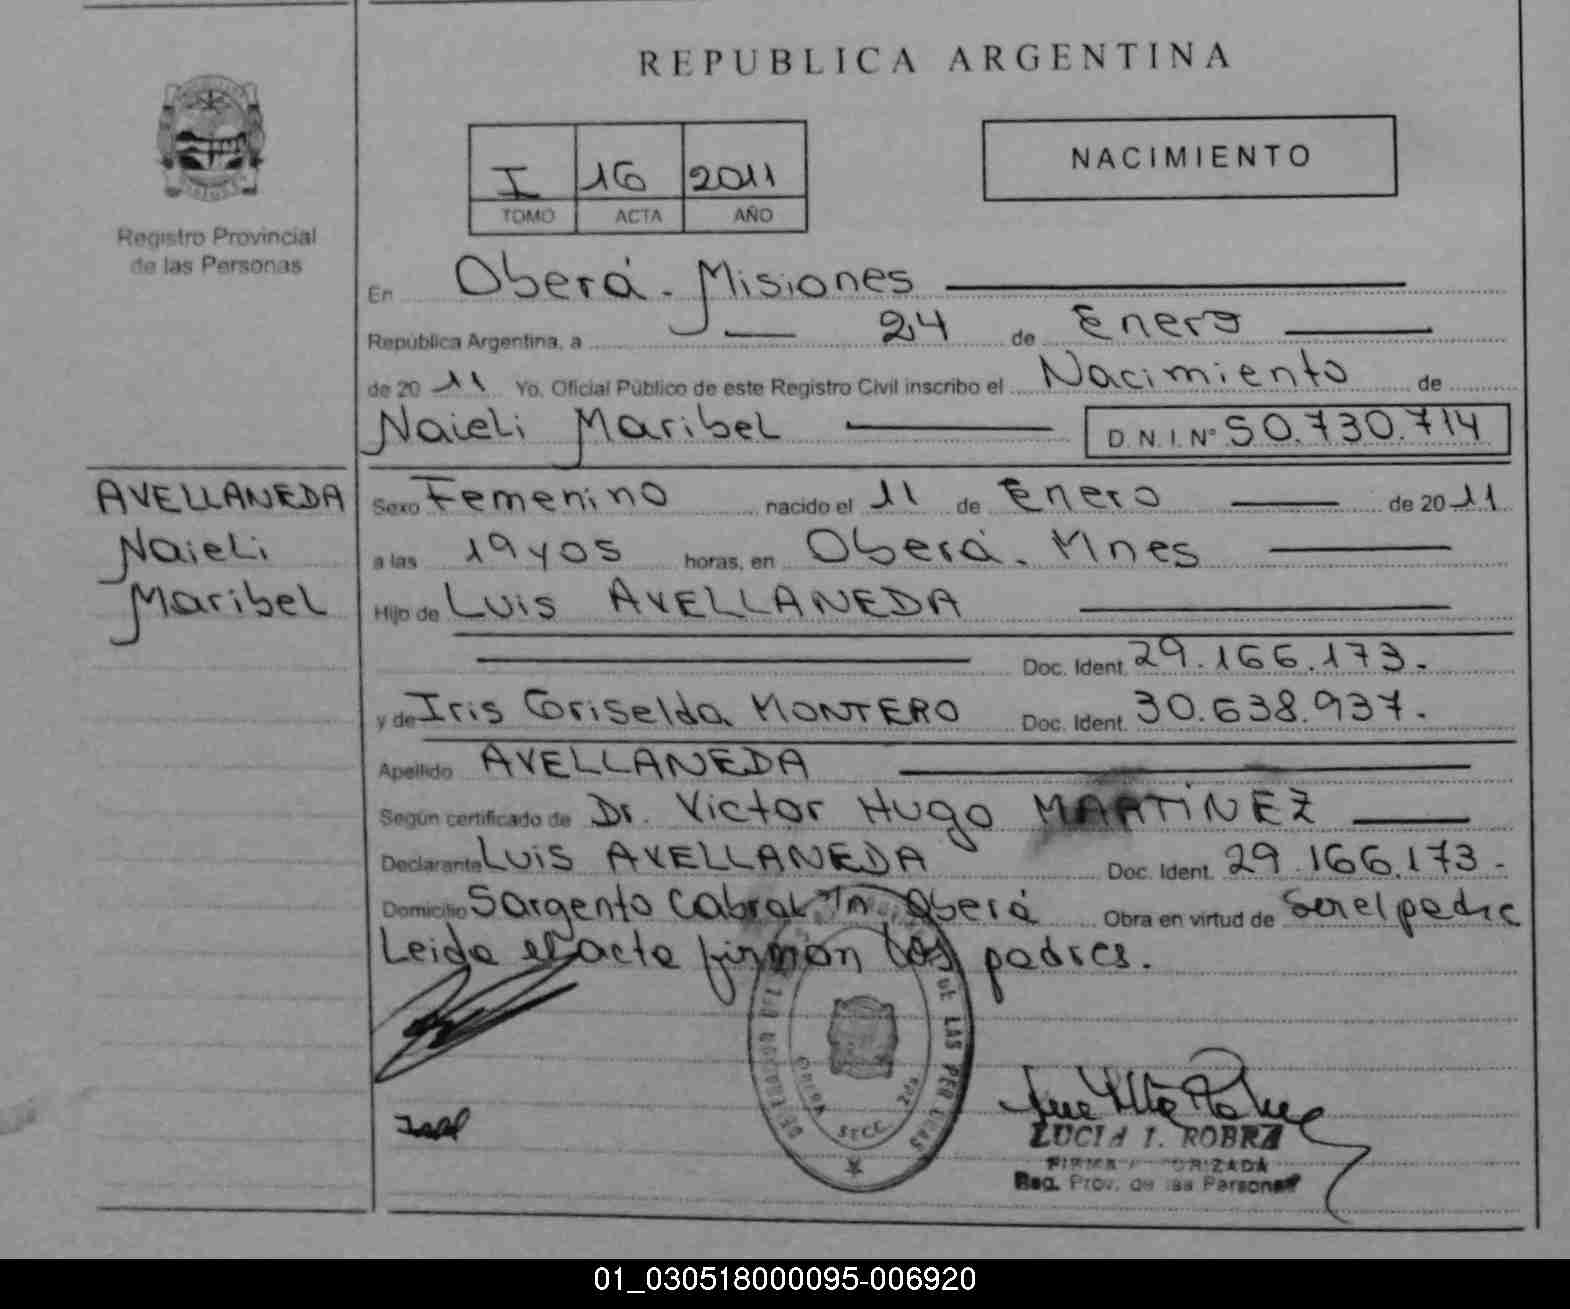 REPUBLICA ARGENTINA
NACIMIENTO
I 16 2011
TOMO ACTA AÑO
Registro Provincial
de las Personas
En Oberá - Misiones
República Argentina, a 24 de Enero
de 20 11 Yo, Oficial Público de este Registro Civil inscribo el Nacimiento de
Naieli Maribel D.N.I. Nº 50.730.714
AVELLANEDA
Naieli
Maribel
Sexo Femenino nacido el 11 de Enero de 20 11
a las 19 y 05 horas, en Oberá - Mnes
Hijo de Luis AVELLANEDA
Doc. Ident. 29.166.173.
y de Iris Griselda MONTERO Doc. Ident. 30.638.937.
Apellido AVELLANEDA
Según certificado de Dr. Victor Hugo MARTÍNEZ
Declarante Luis AVELLANEDA Doc. Ident. 29.166.173-
Domicilio Sargento Cabral Oberá Obra en virtud de Ser el padre
Leida el acta firman los padres.
DE LAS PER
OBERA
SECC. 2da
LUCIA I. ROBRA
FIRMA
Reg. Prov. de las Personas
01_030518000095-006920